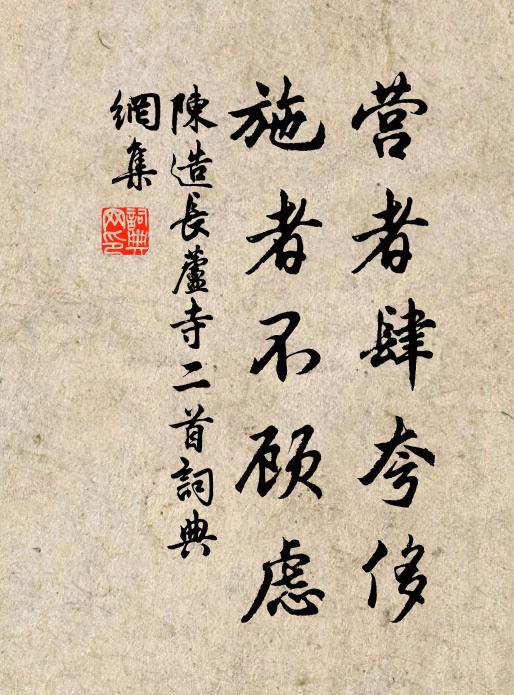 营者肆夸侈
施者不顾虑
陳造長蘆寺二首詞典
網集
詞典
网印